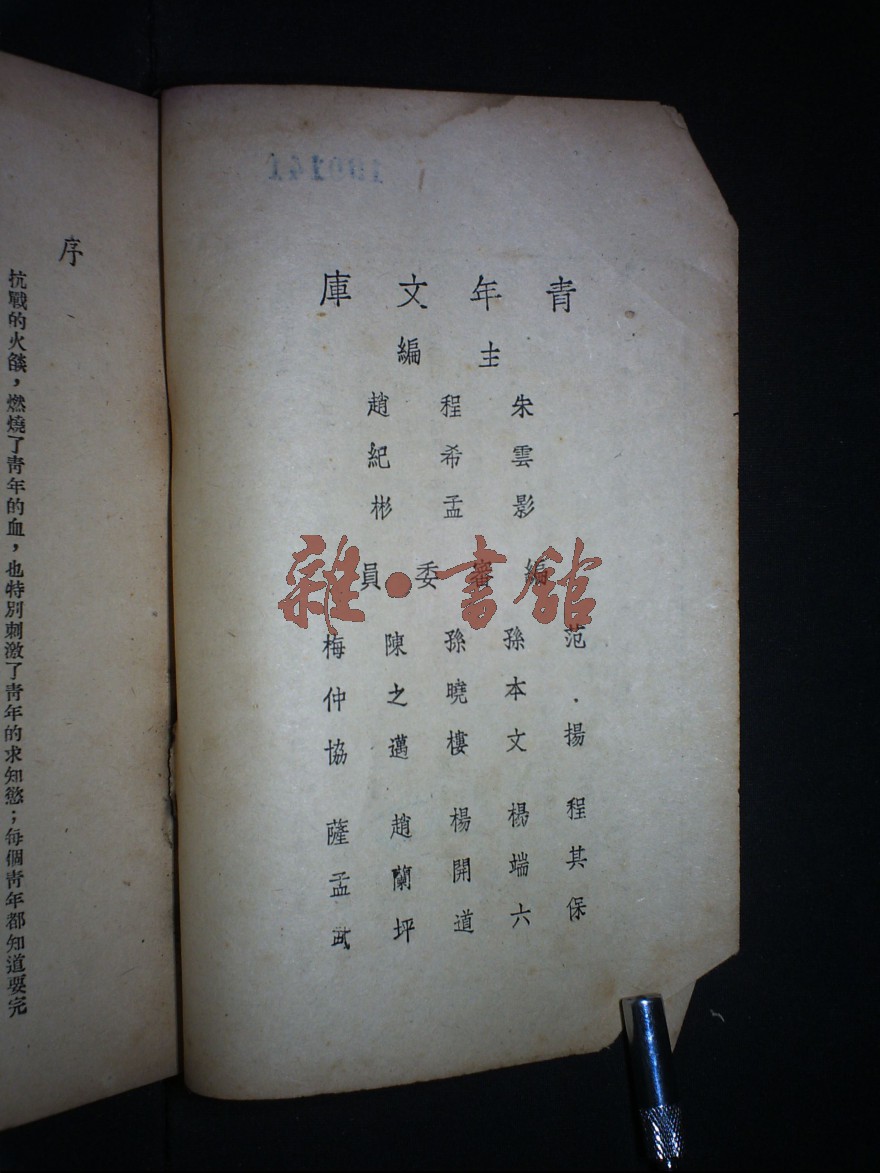 青年文庫
主編
朱雲影
程希孟
趙紀彬
編審委員
范·揚
孫本文
孫曉樓
陳之邁
梅仲協
程其保
楊端六
楊開道
趙蘭坪
薩孟武
序
抗戰的火燄，燃燒了靑年的血，也特別刺激了靑年的求知慾；每個靑年都知道要完
雜·書館
100141